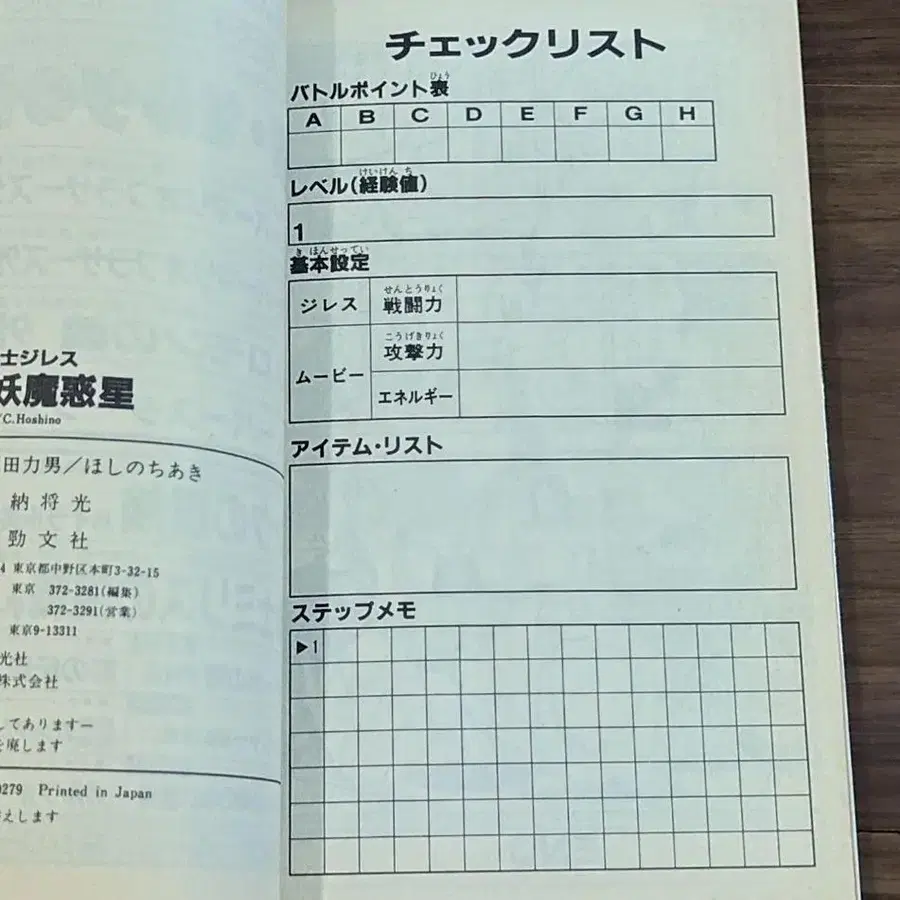 士ジレス
妖魔惑星
/C.Hoshino
田力男／ほしのちあき
納将光
勁文社
4 東京都中野区本町3-32-15
東京 372-3281(編集)
372-3291(営業)
東京9-13311
光社
株式会社
してありますー
を廃します
0279 Printed in Japan
えします
チェックリスト
ひょう
バトルポイント表
A B C D E F G H
けいけん ち
レベル(経験値)
1
き ほんせってい
基本設定
せんとうりょく
ジレス 戦闘力
こうげきりょく
攻撃力
ムービー
エネルギー
アイテム・リスト
ステップメモ
▶1